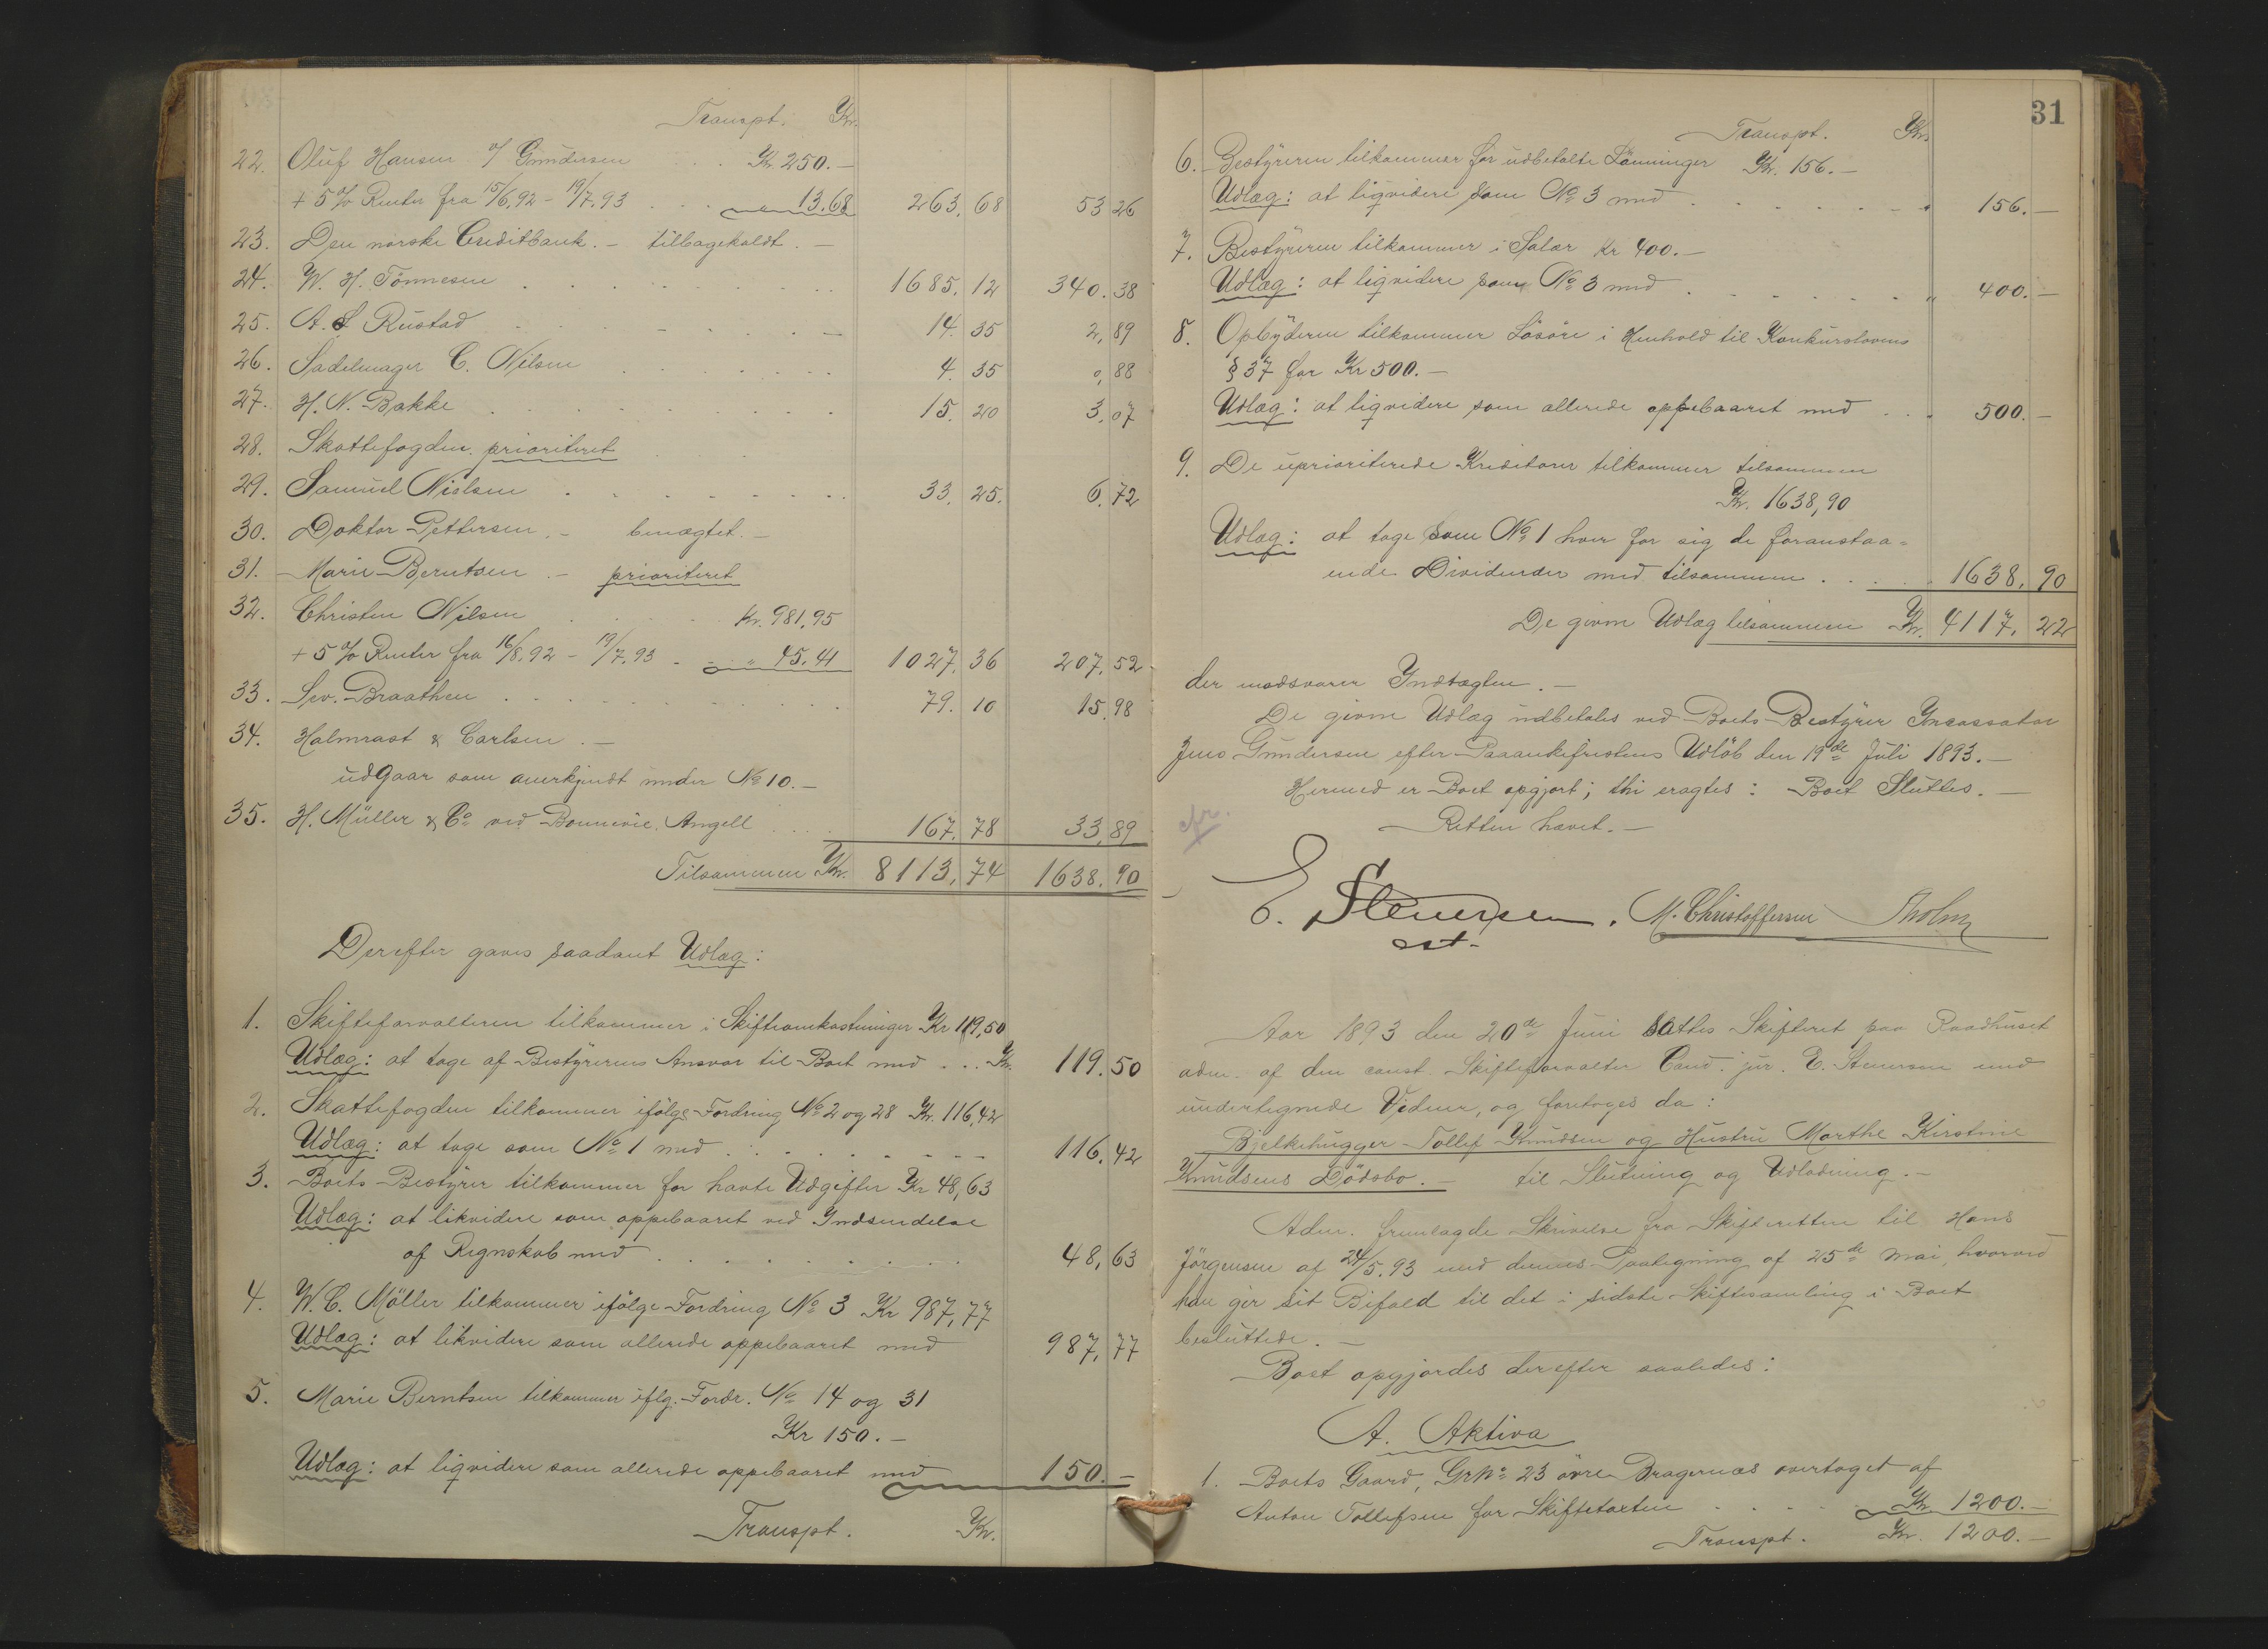 Transpt. Kr.
22. Oluf Hansen v/ Gundersen . . . Kr. 250.–
+ 5 % Renter fra 15/6.92 – 19/7.93 . . . 13.68 263.68 53 26
23. Den norske Creditbank. – tilbageholdt. –
24. W. H. Tönnesen . . . 1685.12 340.38
25. A. S Rustad . . . 14.35 2,89
26. Sadelmager C. Nilsen . . . 4.35 0,88
27. H. N. Bakke . . . 15.20 3,07
28. Skattefogden. prioriteret
29. Samuel Nielsen . . . 33.25. 6.72
30. Doktor Pettersen. – benægtet. –
31. Marie Berntsen. – prioriteret
32. Christen Nilsen . . . Kr. 981,95
+ 5 % Renter fra 16/8.92 – 19/7.93 . – „ 45.41 1027,36 207,52
33. Sev. Braathen . . . 79.10 15,98
34. Halmrast & Carlsen. –
udgaar som anerkjendt under No 10. –
35. H. Müller & Co ved Bonnevie Angell . . . 167.78 33,89
Tilsammen Kr. 8113,74 1638.90
Derefter gaves saadant Udlæg:
1. Skifteforvalteren tilkommer i Skifteomkostninger Kr 119,50
Udlæg: at tage af Bestyrerens Ansvar til Boet med . . . Kr. 119.50
2. Skattefogden tilkommer ifölge Fordring No 2 og 28 Kr. 116,42
Udlæg: at tage som No 1 med . . . 116,42
3. Boets Bestyrer tilkommer for havte Udgifter Kr 48,63
Udlæg: at likvidere som oppebaaret ved Indsendelse
af Regnskab med . . . 48,63
4. W. C. Möller tilkommer ifölge Fordring No 3 Kr 987,77
Udlæg: at likvidere som allerede oppebaaret med 987,77
5. Marie Berntsen tilkommer iflg. Fordr. No 14 og 31
Kr 150. –
Udlæg: at liqvidere som allerede oppebaaret med 150. –
Transpt. Kr.
31
Transpt. Kr.
6. Bestyreren tilkommer for udbetalte Lönninger Kr. 156. –
Udlæg: at liqvidere som No 3 med . . . 156. –
7. Bestyreren tilkommer i Salær Kr 400. –
Udlæg: at liqvidere som No 3 med . . . „ 400. –
8. Opbyderen tilkommer Lösöre i Henhold til Konkurslovens
§ 37 for Kr 500. –
Udlæg: at liqvidere som allerede oppebaaret med . . . 500. –
9. De uprioriterede Kreditorer tilkommer tilsammen
Kr. 1638,90
Udlæg: at tage som No 1 hver for sig de foranstaa=
ende Dividender med tilsammen . . . 1638,90
De givne Udlæg tilsammen Kr. 4117,22
der modsvarer Indtægten. –
De givne Udlæg udbetales ved Boets Bestyrer Incassator
Jens Gundersen efter Paaankefristens Udlöb den 19de Juli 1893. –
Hermed er Boet opgjort; thi eragtes: Boet Sluttes. –
Retten hævet. –
cfr.
E. Stenersen. M. Christoffersen Tholm
cst.
Aar 1893 den 20de Juni sattes Skifteret paa Raadhuset
adm. af den const. Skifteforvalter Cand. jur. E. Stenersen med
undertegnede Vidner, og foretoges da:
Bjelkehugger Tollef Knudsen og Hustru Marthe Kirstine
Knudsens Dödsbo. – til Slutning og Udlodning. –
Adm. fremlagde Skrivelse fra Skifteretten til Hans
Jörgensen af 24/5.93 med dennes Paategning af 25de Mai, hvorved
han gir sit Bifald til det i sidste Skiftesamling i Boet
besluttede. –
Boet opgjordes derefter saaledes:
A. Aktiva
1. Boets Gaard, GrNo 23 övre Bragernæs overtaget af
Anton Tollefsen for Skiftetaxten . . . Kr. 1200. –
Transpt. Kr. 1200. –